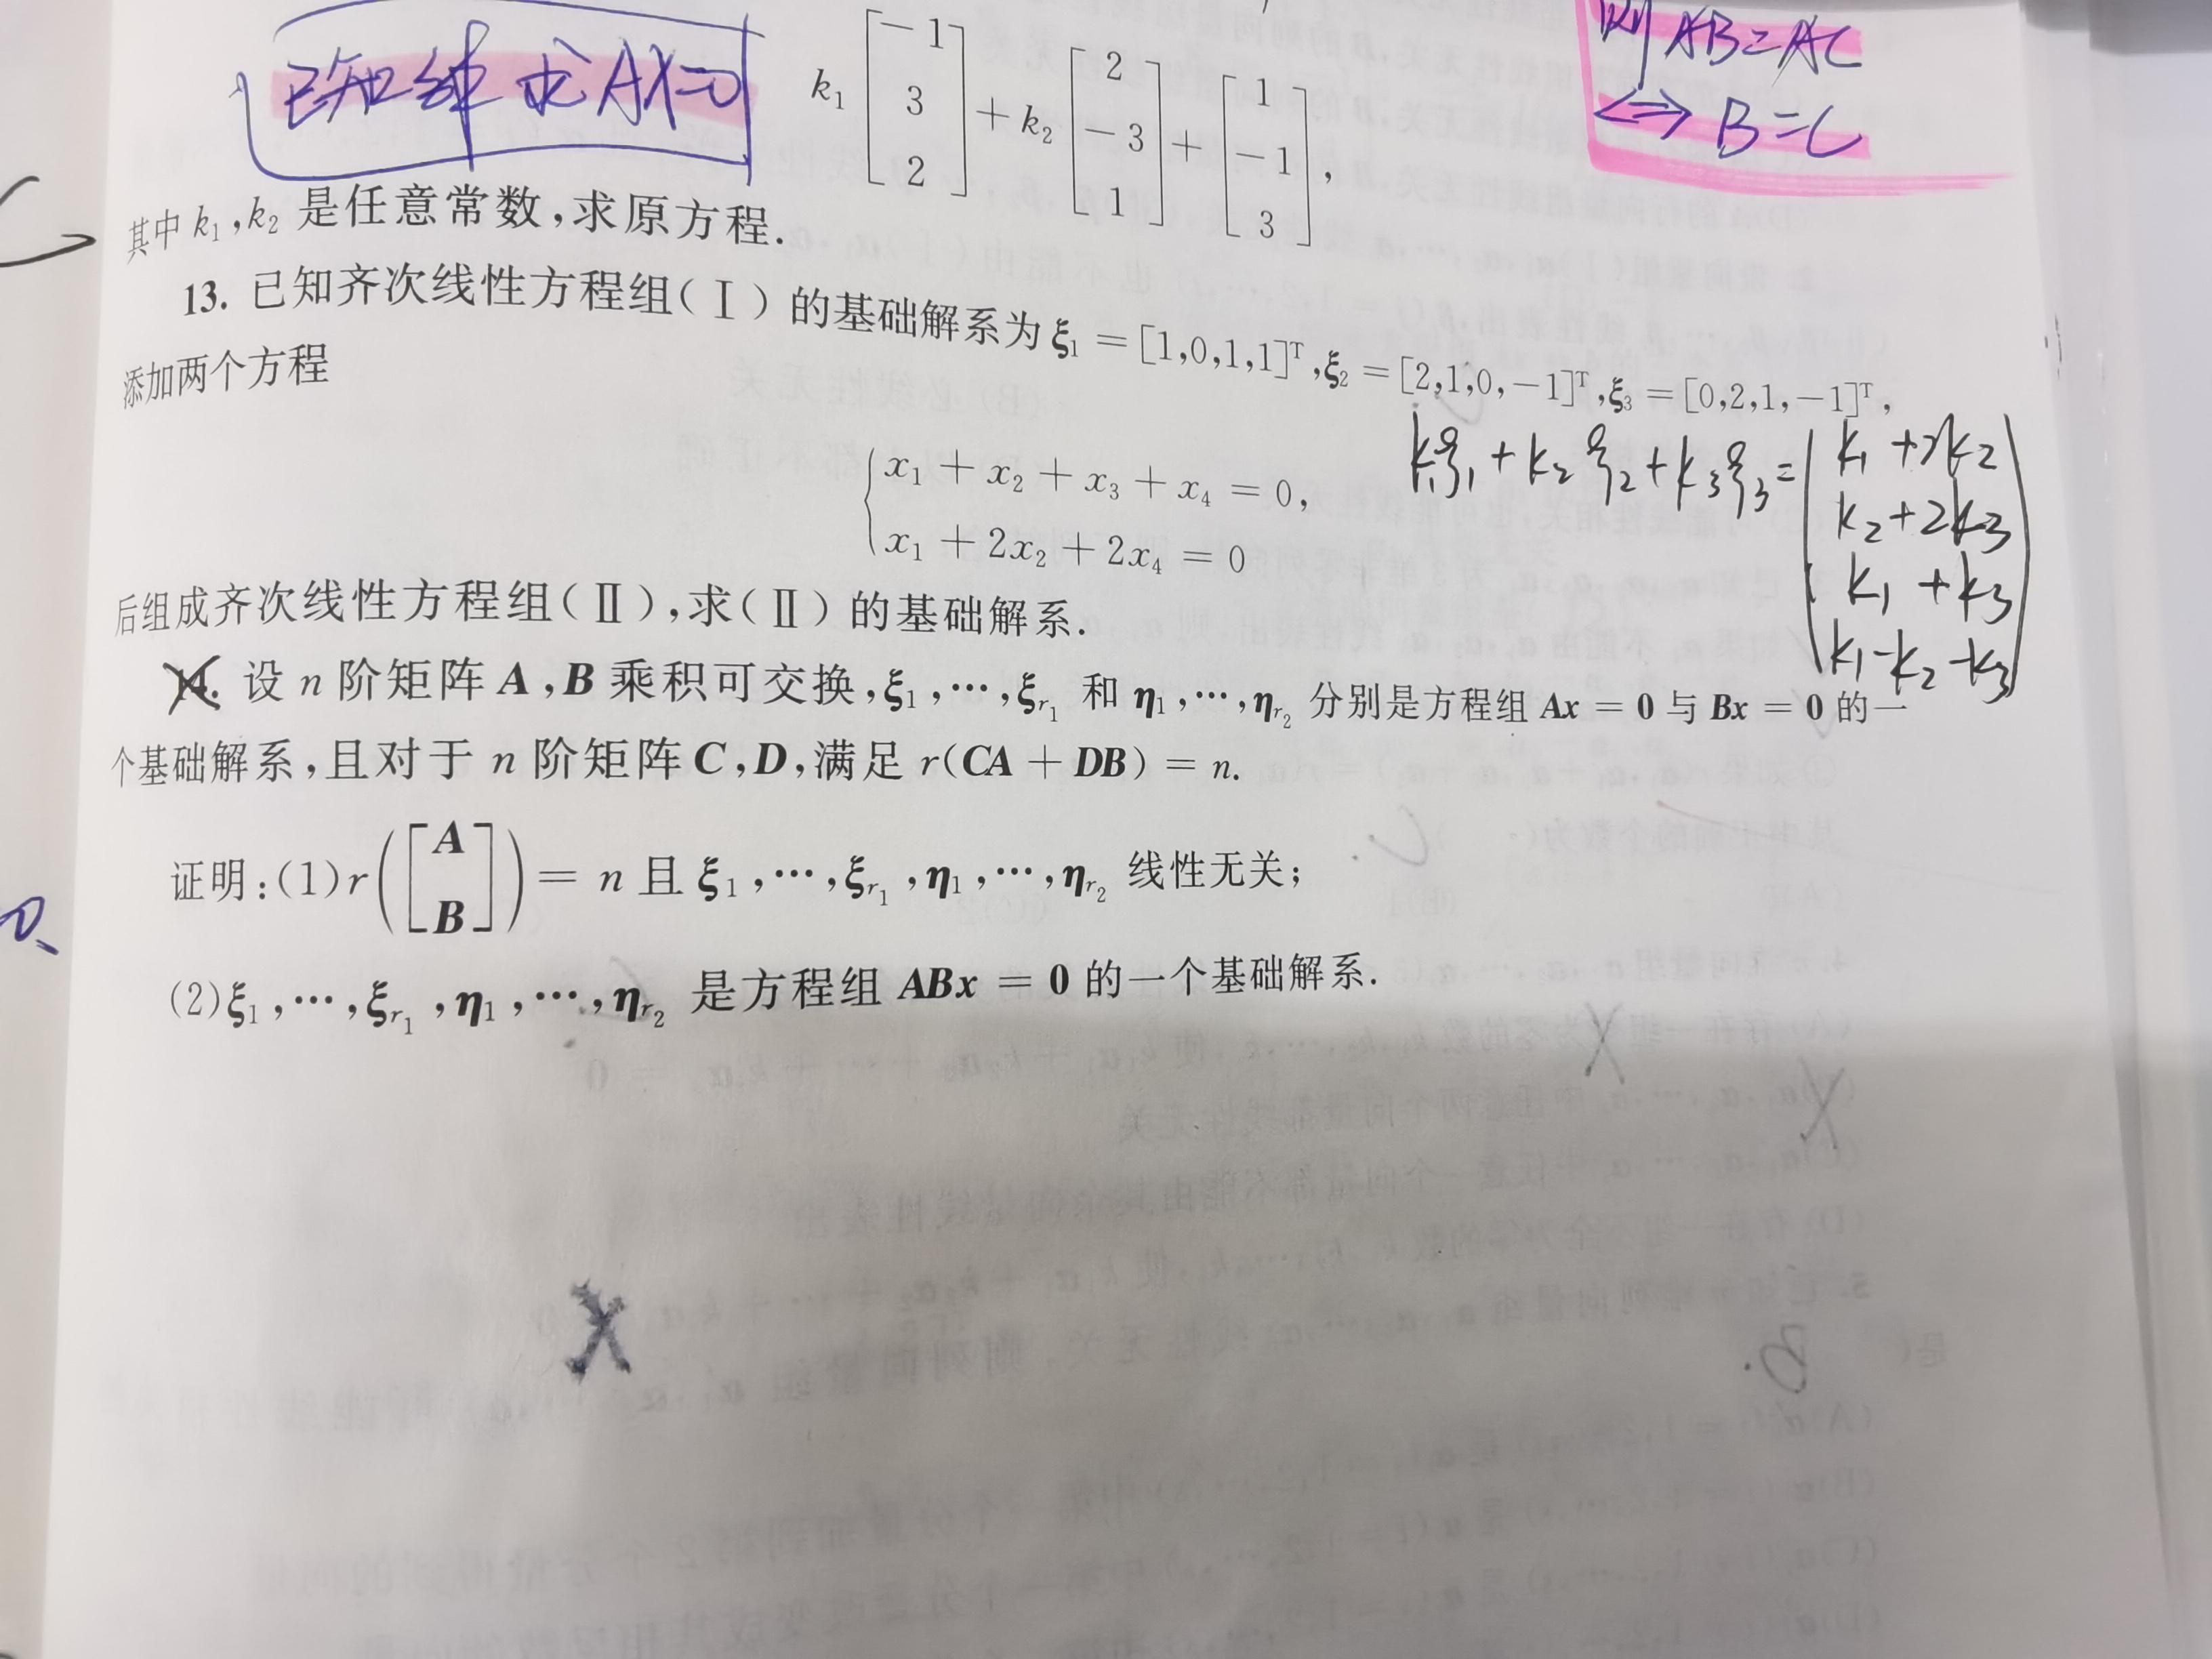 已知解 求AX=0
则 AB=AC
⟺ B=C
k₁[−1, 3, 2] + k₂[2, −3, 1] + [1, −1, 3],
其中 k₁,k₂ 是任意常数,求原方程.
13. 已知齐次线性方程组(Ⅰ)的基础解系为 ξ₁ = [1,0,1,1]ᵀ,ξ₂ = [2,1,0,−1]ᵀ,ξ₃ = [0,2,1,−1]ᵀ,
添加两个方程
x₁ + x₂ + x₃ + x₄ = 0,
x₁ + 2x₂ + 2x₄ = 0
k₁ξ₁+k₂ξ₂+k₃ξ₃=
k₁+2k₂
k₂+2k₃
k₁+k₃
k₁-k₂-k₃
后组成齐次线性方程组(Ⅱ),求(Ⅱ)的基础解系.
14. 设 n 阶矩阵 A,B 乘积可交换,ξ₁,⋯,ξr₁ 和 η₁,⋯,ηr₂ 分别是方程组 Ax = 0 与 Bx = 0 的一
个基础解系,且对于 n 阶矩阵 C,D,满足 r(CA + DB) = n.
证明:(1)r([A B]) = n 且 ξ₁,⋯,ξr₁,η₁,⋯,ηr₂ 线性无关;
(2)ξ₁,⋯,ξr₁,η₁,⋯,ηr₂ 是方程组 ABx = 0 的一个基础解系.